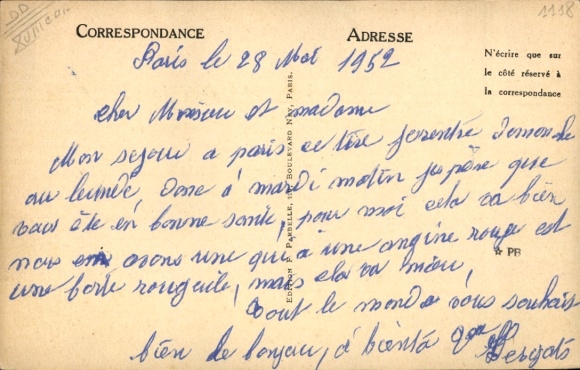 1118
CORRESPONDANCE
ADRESSE
N'écrire que sur
le côté réservé à
la correspondance
Paris le 28 Mai 1952
cher Monsieur et madame
Mon sejour a paris ce tire je rentre
au lundé, donc à mardi matin jespère que
vous ête en bonne santé, pour moi cela va bien
nous en avons une qui à une angine rouge est
une forte rougeole, mais cela va mieu,
tout le monde vous souhais
bien de bonjour, á bientô
EDITION P. PARBELLE, BOULEVARD NEY, PARIS.
☆ PB